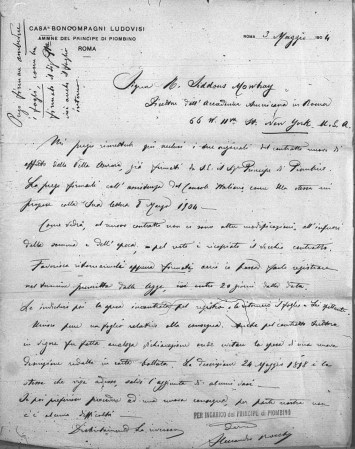 CASA BONCOMPAGNI LUDOVISI
AMMNE DEL PRINCIPE DI PIOMBINO
ROMA
ROMA 3 Maggio 1904
Prego firmare ambedue
i fogli, come ha
firmato il Sig.
ivi anche il foglio
interno
Signor H. Siddons Mowbray
Direttore dell'Accademia Americana in Roma
66 W. 11th St. New York. U.S.A.
Mi pregio rimetterle qui acchiusi i due originali del contratto nuovo di
affitto della Villa Aurora, già firmati da S.E. il Sig Principe di Piombino.
La prego firmarli coll'assistenza del Console Italiano come Ella stesso mi
propone colla Sua lettera 8 Marzo 1904.
Come vedrà, al nuovo contratto non vi sono altre modificazioni, all'infuori
della somma e dell'epoca, pel resto è ricopiato il vecchio contratto.
Favorisca ritornarmeli appena firmati onde io possa farli registrare
nel termine prescritto dalla legge cioè entro 20 giorni dalla data.
Le indicherò poi la spesa incontrata pel registro
Unisco pure un foglio relativo alla consegna. Anche pel contratto
in vigore fu fatta analoga dichiarazione onde evitare la spesa di una nuova
descrizione redatta in carta bollata. La descrizione 24 Maggio 1898 è la
stessa che vige adesso, salvo l'aggiunta di alcuni vasi.
Se poi preferisce procedere ad una nuova consegna, per parte nostra non
c'è alcuna difficoltà.
Distintamente La riverisco
PER INCARICO DEL PRINCIPE DI PIOMBINO